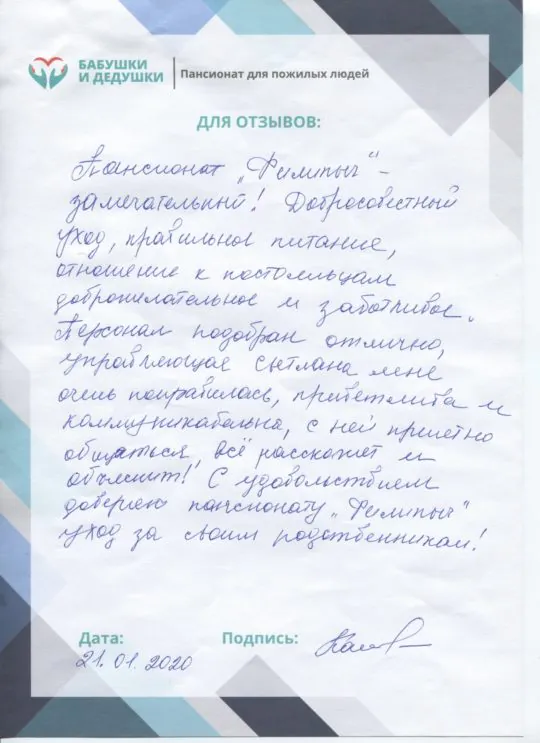 БАБУШКИ
И ДЕДУШКИ
Пансионат для пожилых людей
ДЛЯ ОТЗЫВОВ:
Пансионат „Филипыч" –
замечательный! Добросовестный
уход, правильное питание,
отношение к постояльцам
доброжелательное и заботливое.
Персонал подобран отлично,
управляющая Светлана мне
очень понравилась, приветлива и
коммуникабельна, с ней приятно
общаться, всё расскажет и
объяснит! С удовольствием
доверяю пансионату „Филипыч"
уход за своим родственникам!
Дата:
Подпись:
21.01.2020